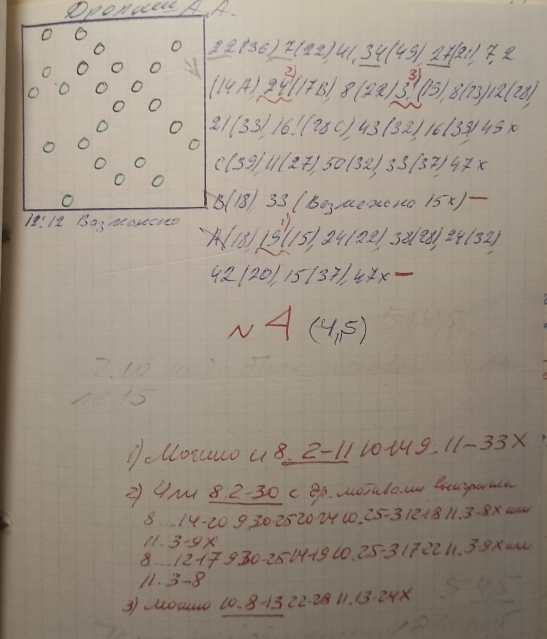 А.А.
22(36) 7(22) 41, 34(45), 27(21), 7, 2
(14А) 24(17В), 8(22) 3(15), 8(13) 12(28)
21(33), 16!(28С), 43(32) 16(33) 45х
С(39), 11(27), 50(32), 33(37) 47х
12:12 Возможно
В(18) 33 (Возможно 15х) –
А(18) 19(15), 24(22), 38(28), 24(32)
42(20), 15(37), 47х –
№ 4 (4,5)
1) Можно и 8. 2–11 10-14 9. 11–33х
2) Или 8. 2-30 с др. мотивами выигрыша
8....14-20 9.30-25 20-24 10.25-3 12-18 11.3-8х или
11.3-9х
8....12-17 9.30-25 14-19 10.25-3 17-22 11.3-9х или
11.3-8
3) Можно 10.8-13 22-28 11.13-24х